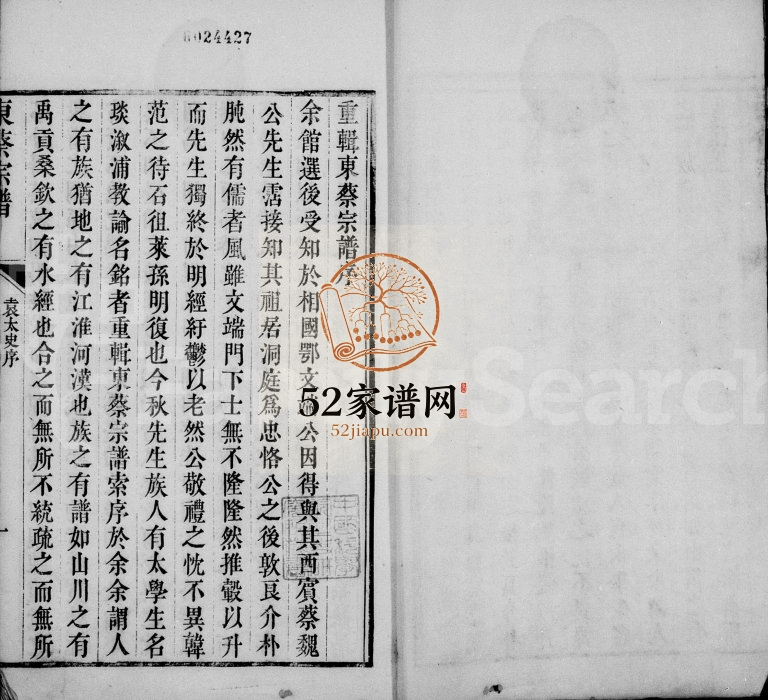 6024427
重輯東蔡宗譜序
余館選後受知於相國鄂文端公因得與其西賓蔡魏
公先生霑接知其祖居洞庭爲忠恪公之後敦艮介朴
肫然有儒者風雖文端門下士無不隆隆然推轂以升
而先生獨終於明經紆鬱以老然公敬禮之忱不異韓
范之待石徂萊孫明復也今秋先生族人有太學生名
琰漵浦教諭名銘者重輯東蔡宗譜索序於余余謂人
之有族猶地之有江淮河漢也族之有譜如山川之有
禹貢桑欽之有水經也合之而無所不統疏之而無所
東蔡宗譜
袁太史序
一
52家谱网
52jiapu.com
Search